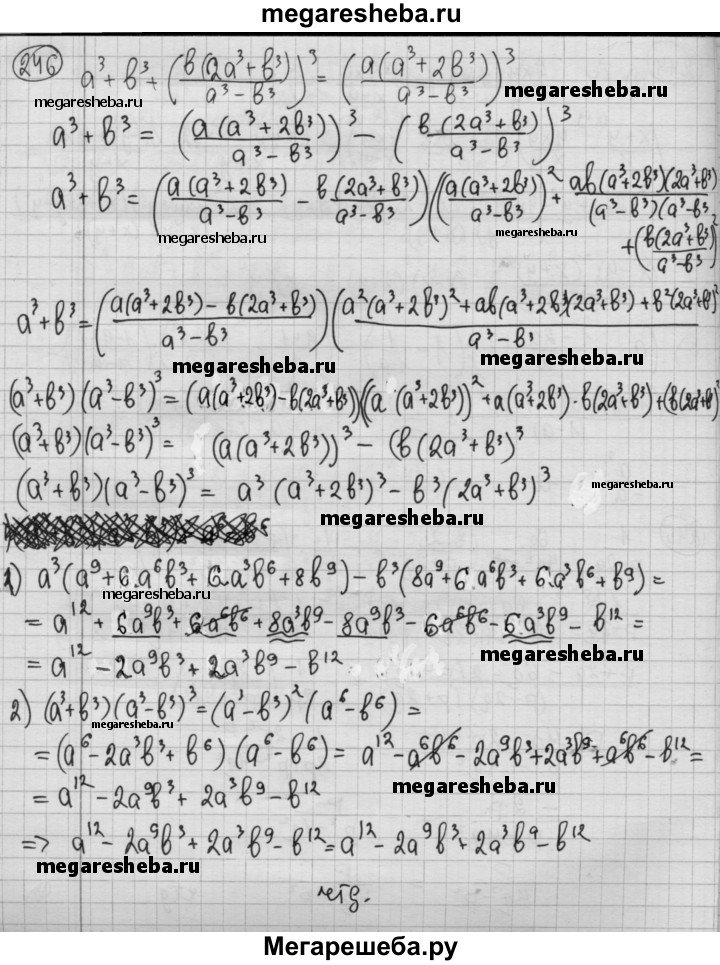 megaresheba.ru
246 a³+b³+(b(2a³+b³)/a³-b³)³=(a(a³+2b³)/a³-b³)³
megaresheba.ru megaresheba.ru
a³+b³=(a(a³+2b³)/a³-b³)³-(b(2a³+b³)/a³-b³)³
a³+b³=(a(a³+2b³)/a³-b³-b(2a³+b³)/a³-b³)((a(a³+2b³)/a³-b³)²+ab(a³+2b³)(2a³+b³)/(a³-b³)(a³-b³)
megaresheba.ru
+(b(2a³+b³)/a³-b³)²
a³+b³=(a(a³+2b³)-b(2a³+b³)/a³-b³)(a²(a³+2b³)²+ab(a³+2b³)(2a³+b³)+b²(2a³+b³)²/a³-b³
megaresheba.ru megaresheba.ru
(a³+b³)(a³-b³)³=(a(a³+2b³)-b(2a³+b³))(a(a³+2b³))²+a(a³+2b³)·b(2a³+b³)+(b(2a³+b³)²
(a³+b³)(a³-b³)³=(a(a³+2b³))³-(b(2a³+b³)³
megaresheba.ru
(a³+b³)(a³-b³)³=a³(a³+2b³)³-b³(2a³+b³)³
megaresheba.ru
1) a³(a⁹+6.a⁶b³+6.a³b⁶+8b⁹)-b³(8a⁹+6.a⁶b³+6.a³b⁶+b⁹)=
=a¹²+6a⁹b³+6a⁶b⁶+8a³b⁹-8a⁹b³-6a⁶b⁶-6.a³b⁹-b¹²=
megaresheba.ru
=a¹²-2a⁹b³+2a³b⁹-b¹²
2) (a³+b³)(a³-b³)³=(a³-b³)²(a⁶-b⁶)=
megaresheba.ru
=(a⁶-2a³b³+b⁶)(a⁶-b⁶)=a¹²-a⁶b⁶-2a⁹b³+2a³b⁹+a⁶b⁶-b¹²=
=a¹²-2a⁹b³+2a³b⁹-b¹²
megaresheba.ru
=> a¹²-2a⁹b³+2a³b⁹-b¹²=a¹²-2a⁹b³+2a³b⁹-b¹²
megaresheba.ru
чтд.
Мегарешеба.ру